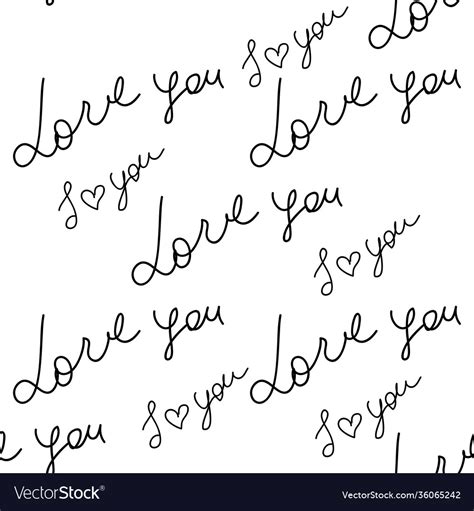 I ♡ you
Lo
Love you
Love you
I ♡ you
Love you
I ♡ you
Love you
Love you
I ♡ you
I ♡ you
you
Love
VectorStock®
VectorStock.com/36065242